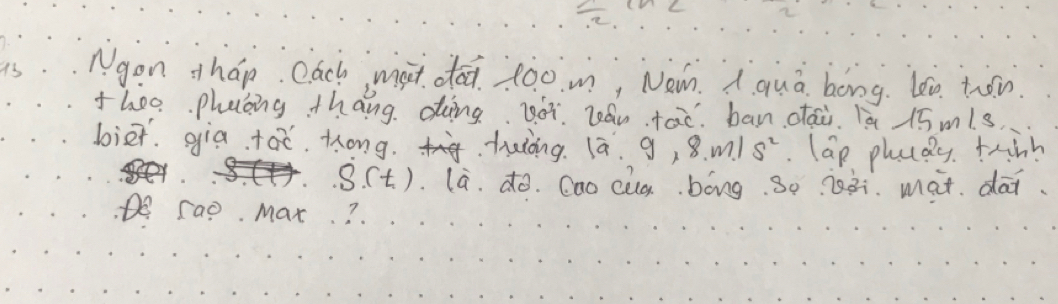 Ngọn tháp cách mặt đất 100 m, Ném 1 quả bóng lên trên
theo phương thẳng đứng với vận tốc ban đầu là 15 m/s
biết gia tốc trọng trường là 9,8 m/s² lập phương trình
S(t) là độ cao của bóng so với mặt đất.
Độ cao max ?